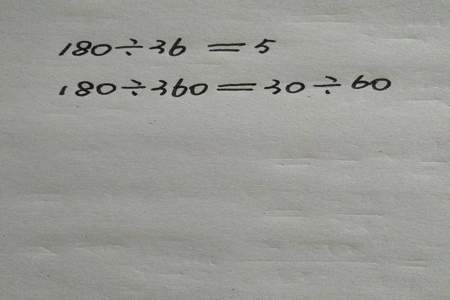 180÷36=5
180÷360=30÷60